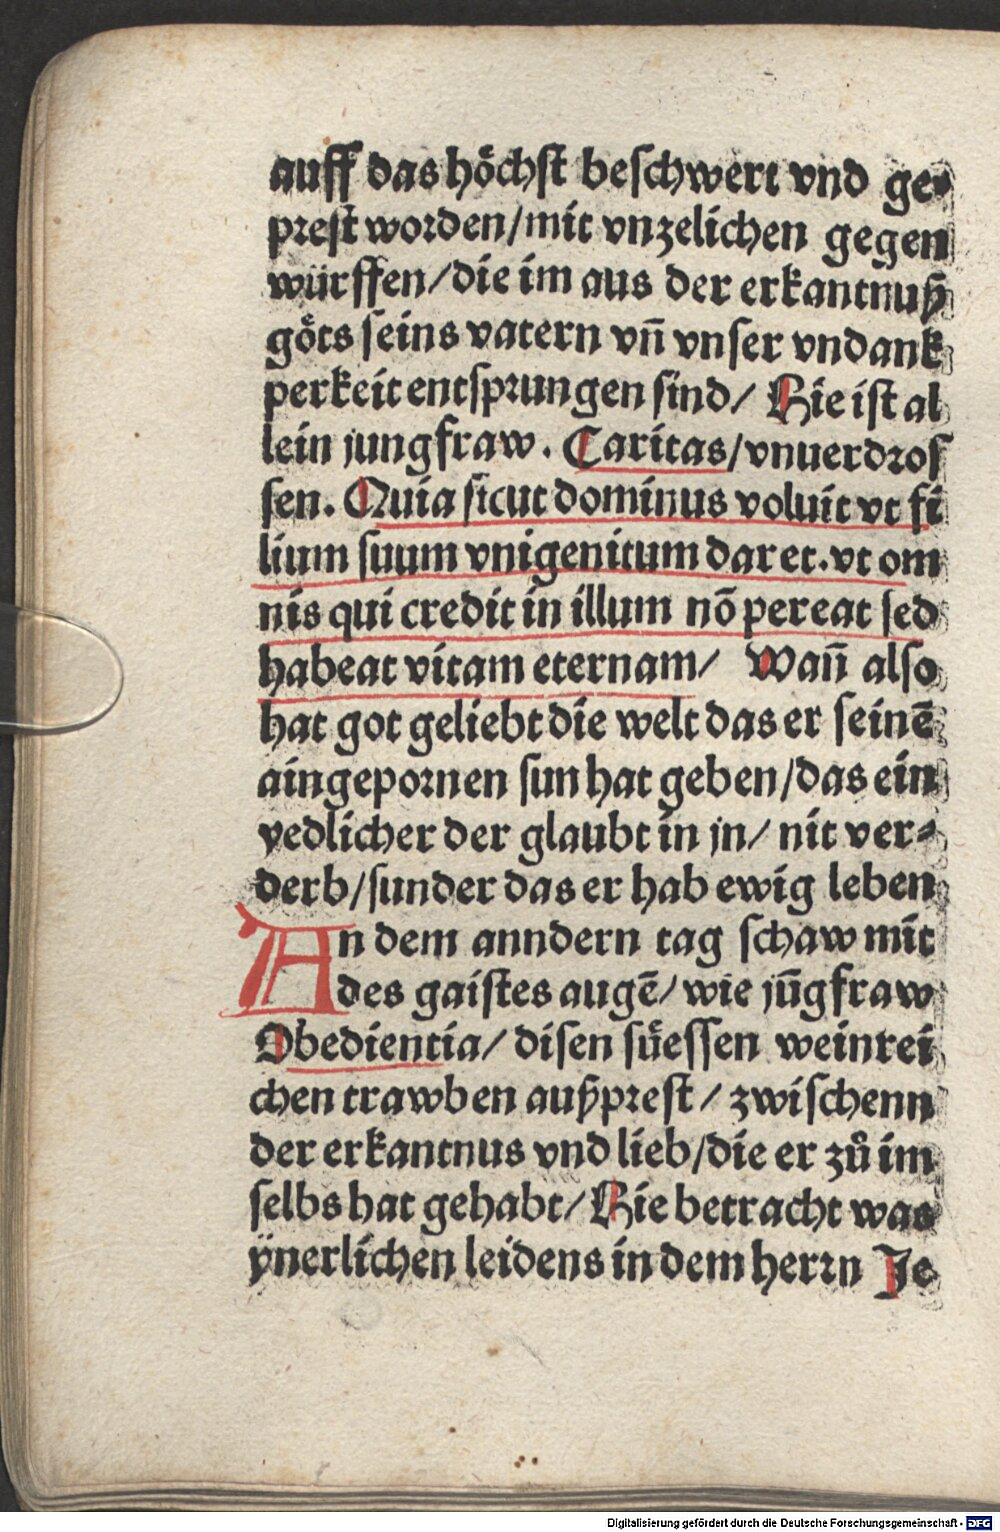 auff das höchst beschwert vnd ge-
prest worden/mit vnzelichen gegen
würffen/die im aus der erkantnuß
göts seins vatern vn̄ vnser vndank
perkeit entsprungen sind/ Hie ist al
lein jungfraw. Caritas/vnuerdros
sen. Quia sicut dominus voluit vt fi
lium suum vnigenitum daret.vt om
nis qui credit in illum nō pereat sed
habeat vitam eternam/ Wan̄ also
hat got geliebt die welt das er seinē
aingepornen sun hat geben/das ein
yedlicher der glaubt in jn/ nit ver-
derb/sunder das er hab ewig leben
An dem anndern tag schaw mit
des gaistes augē/ wie jūgfraw
Obedientia/ disen süessen weinrei
chen trawben außprest/ zwischenn
der erkantnus vnd lieb/die er zů im
selbs hat gehabt/ Hie betracht was
ÿnerlichen leidens in dem herrn Je
Digitalisierung gefördert durch die Deutsche Forschungsgemeinschaft - DFG